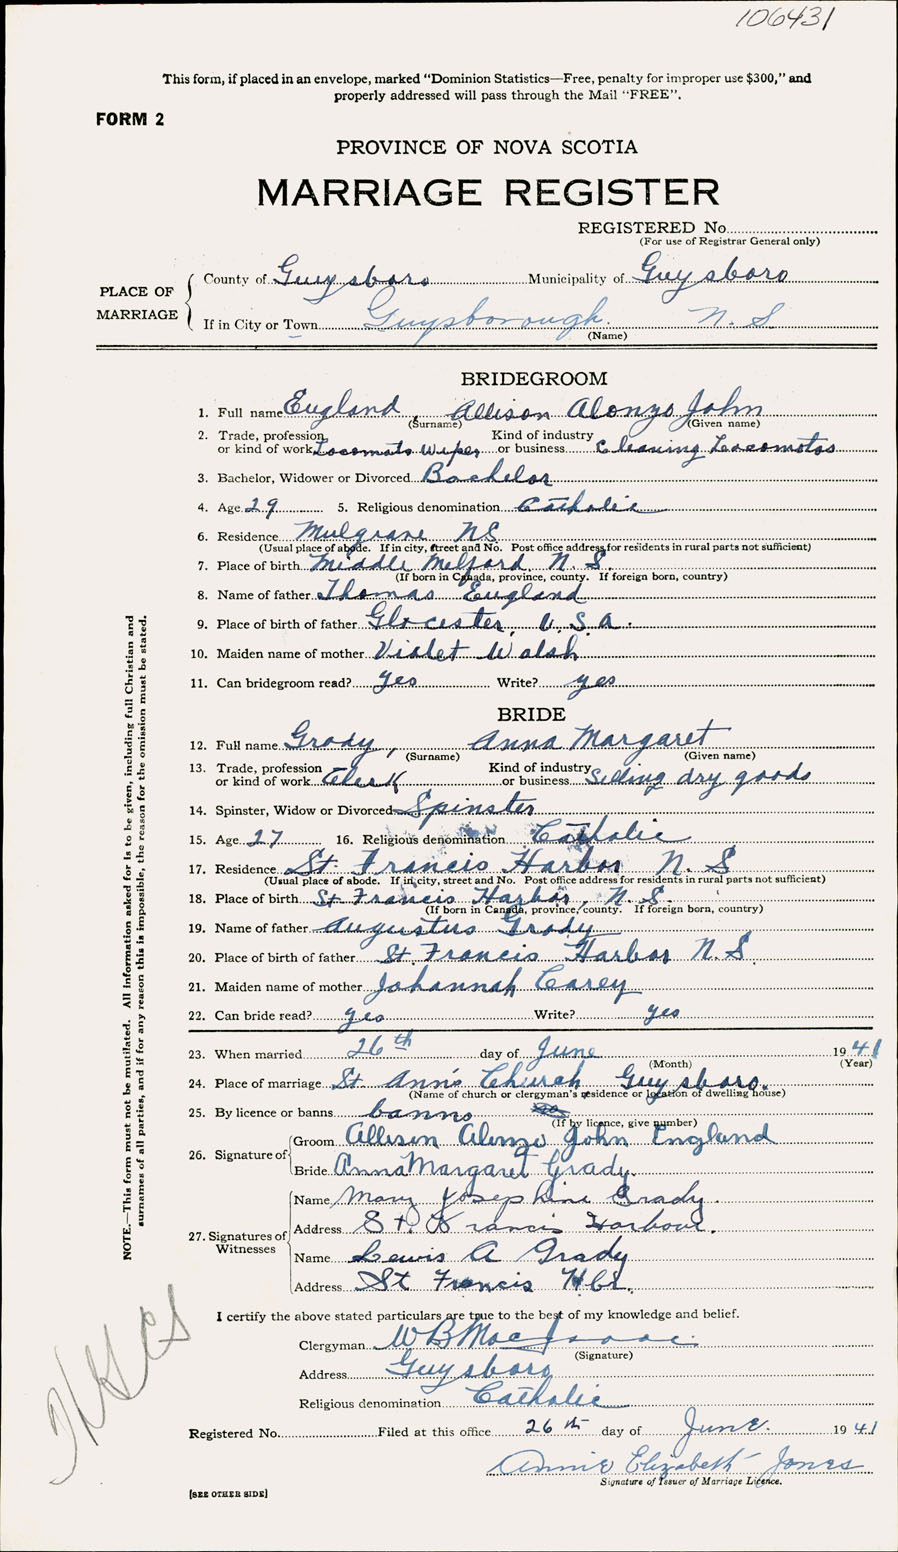 106431
This form, if placed in an envelope, marked “Dominion Statistics—Free, penalty for improper use $300,” and
properly addressed will pass through the Mail “FREE”.
FORM 2
PROVINCE OF NOVA SCOTIA
MARRIAGE REGISTER
REGISTERED No.
(For use of Registrar General only)
PLACE OF MARRIAGE
County of Guysboro Municipality of Guysboro
If in City or Town Guysborough. N. S
(Name)
BRIDEGROOM
1. Full name England, Allison Alonzo John
(Surname) (Given name)
2. Trade, profession Kind of industry
or kind of work Locomato Wiper or business Cleaning Locomotos
3. Bachelor, Widower or Divorced Bachelor
4. Age 29 5. Religious denomination Catholic
6. Residence Mulgrave NS
(Usual place of abode. If in city, street and No. Post office address for residents in rural parts not sufficient)
7. Place of birth Middle Melford N. S.
(If born in Canada, province, county. If foreign born, country)
8. Name of father Thomas England
9. Place of birth of father Glocester, U. S. A.
10. Maiden name of mother Violet Walsh
11. Can bridegroom read? yes Write? yes
BRIDE
12. Full name Grady, Anna Margaret
(Surname) (Given name)
13. Trade, profession Kind of industry
or kind of work Clerk or business Selling dry goods
14. Spinster, Widow or Divorced Spinster
15. Age 27 16. Religious denomination Catholic
17. Residence St. Francis Harbor N. S
(Usual place of abode. If in city, street and No. Post office address for residents in rural parts not sufficient)
18. Place of birth St Francis Harbor, N. S.
(If born in Canada, province, county. If foreign born, country)
19. Name of father Augustus Grady
20. Place of birth of father St. Francis Harbor N. S.
21. Maiden name of mother Johannah Carey
22. Can bride read? yes Write? yes
23. When married 26th day of June 1941
(Month) (Year)
24. Place of marriage St Ann's Church Guysboro.
(Name of church or clergyman's residence or location of dwelling house)
25. By licence or banns banns
(If by licence, give number)
26. Signature of
Groom Allison Alonzo John England
Bride Anna Margaret Grady.
27. Signatures of Witnesses
Name Mary Josephine Grady.
Address St. Francis Harbour.
Name Lewis A Grady
Address St Francis Hbr.
I certify the above stated particulars are true to the best of my knowledge and belief.
Clergyman W B MacIsaac.
(Signature)
Address Guysboro
Religious denomination Catholic
Registered No. Filed at this office 26th day of June. 1941
Annie Elizabeth Jones
Signature of Issuer of Marriage Licence.
[SEE OTHER SIDE]
NOTE.—This form must not be mutilated. All information asked for is to be given, including full Christian and
surnames of all parties, and if for any reason this is impossible, the reason for the omission must be stated.